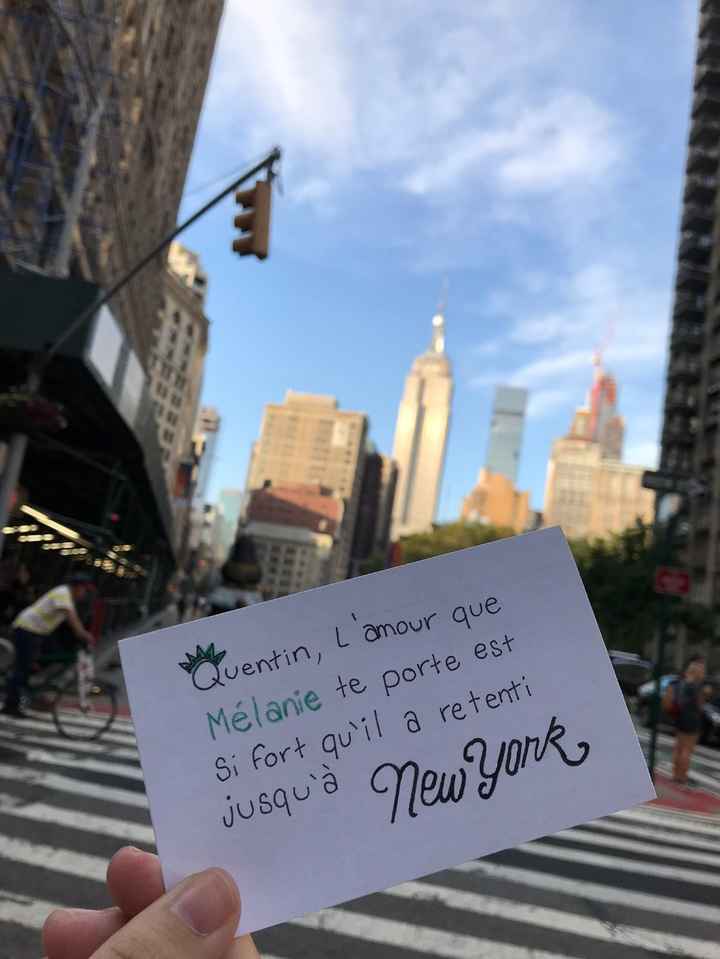 Quentin, L'amour que
Mélanie te porte est
si fort qu'il a retenti
jusqu'à New York